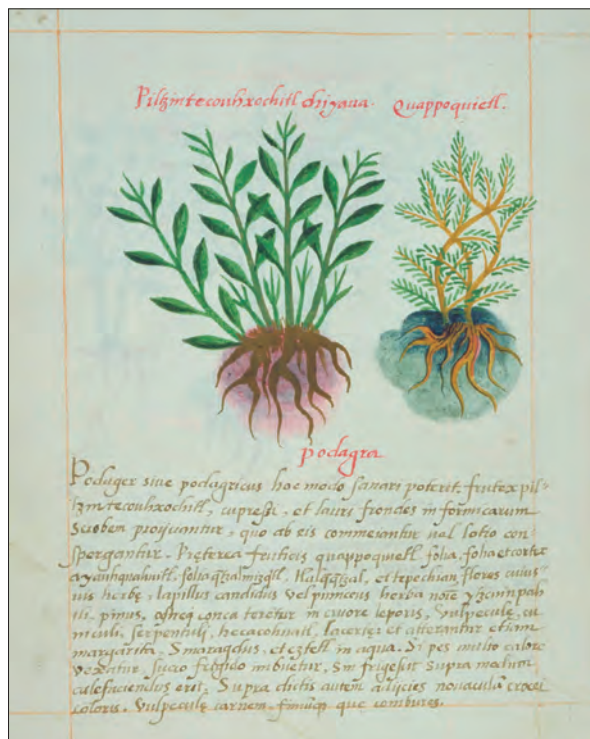 Piltzintecouhxochitl chiyaua. Quappoquietl.
podagra
Podager siue podagricus hoc modo sanari poterit: frutex pil=
tzintecouhxochitl, cupressi, et lauri frondes in formicarum
scrobem proijciantur, quo ab eis commeiantur uel lotio con=
spergantur. Preterea fruticis quappoquietl folia, folia et cortex
ayauhquahuitl, folia et tepechian, flores cuius
uis herbę, lapillus candidus vel puniceus herba
tli, pinus, conca teretur in cruore leporis, vulpeculę, cu
niculi, serpentuli, hecacohuatl, lacertę: et atterantur etiam
margarita, Smaragdus, et eztetl in aqua. Si pes multo calore
vexatur, succo frigido imbuetur, sin frigescit supra modum,
calefaciendus erit. Supra dictis autem adijcies nouaculā crocei
coloris. Vulpeculę carnem, que combures.